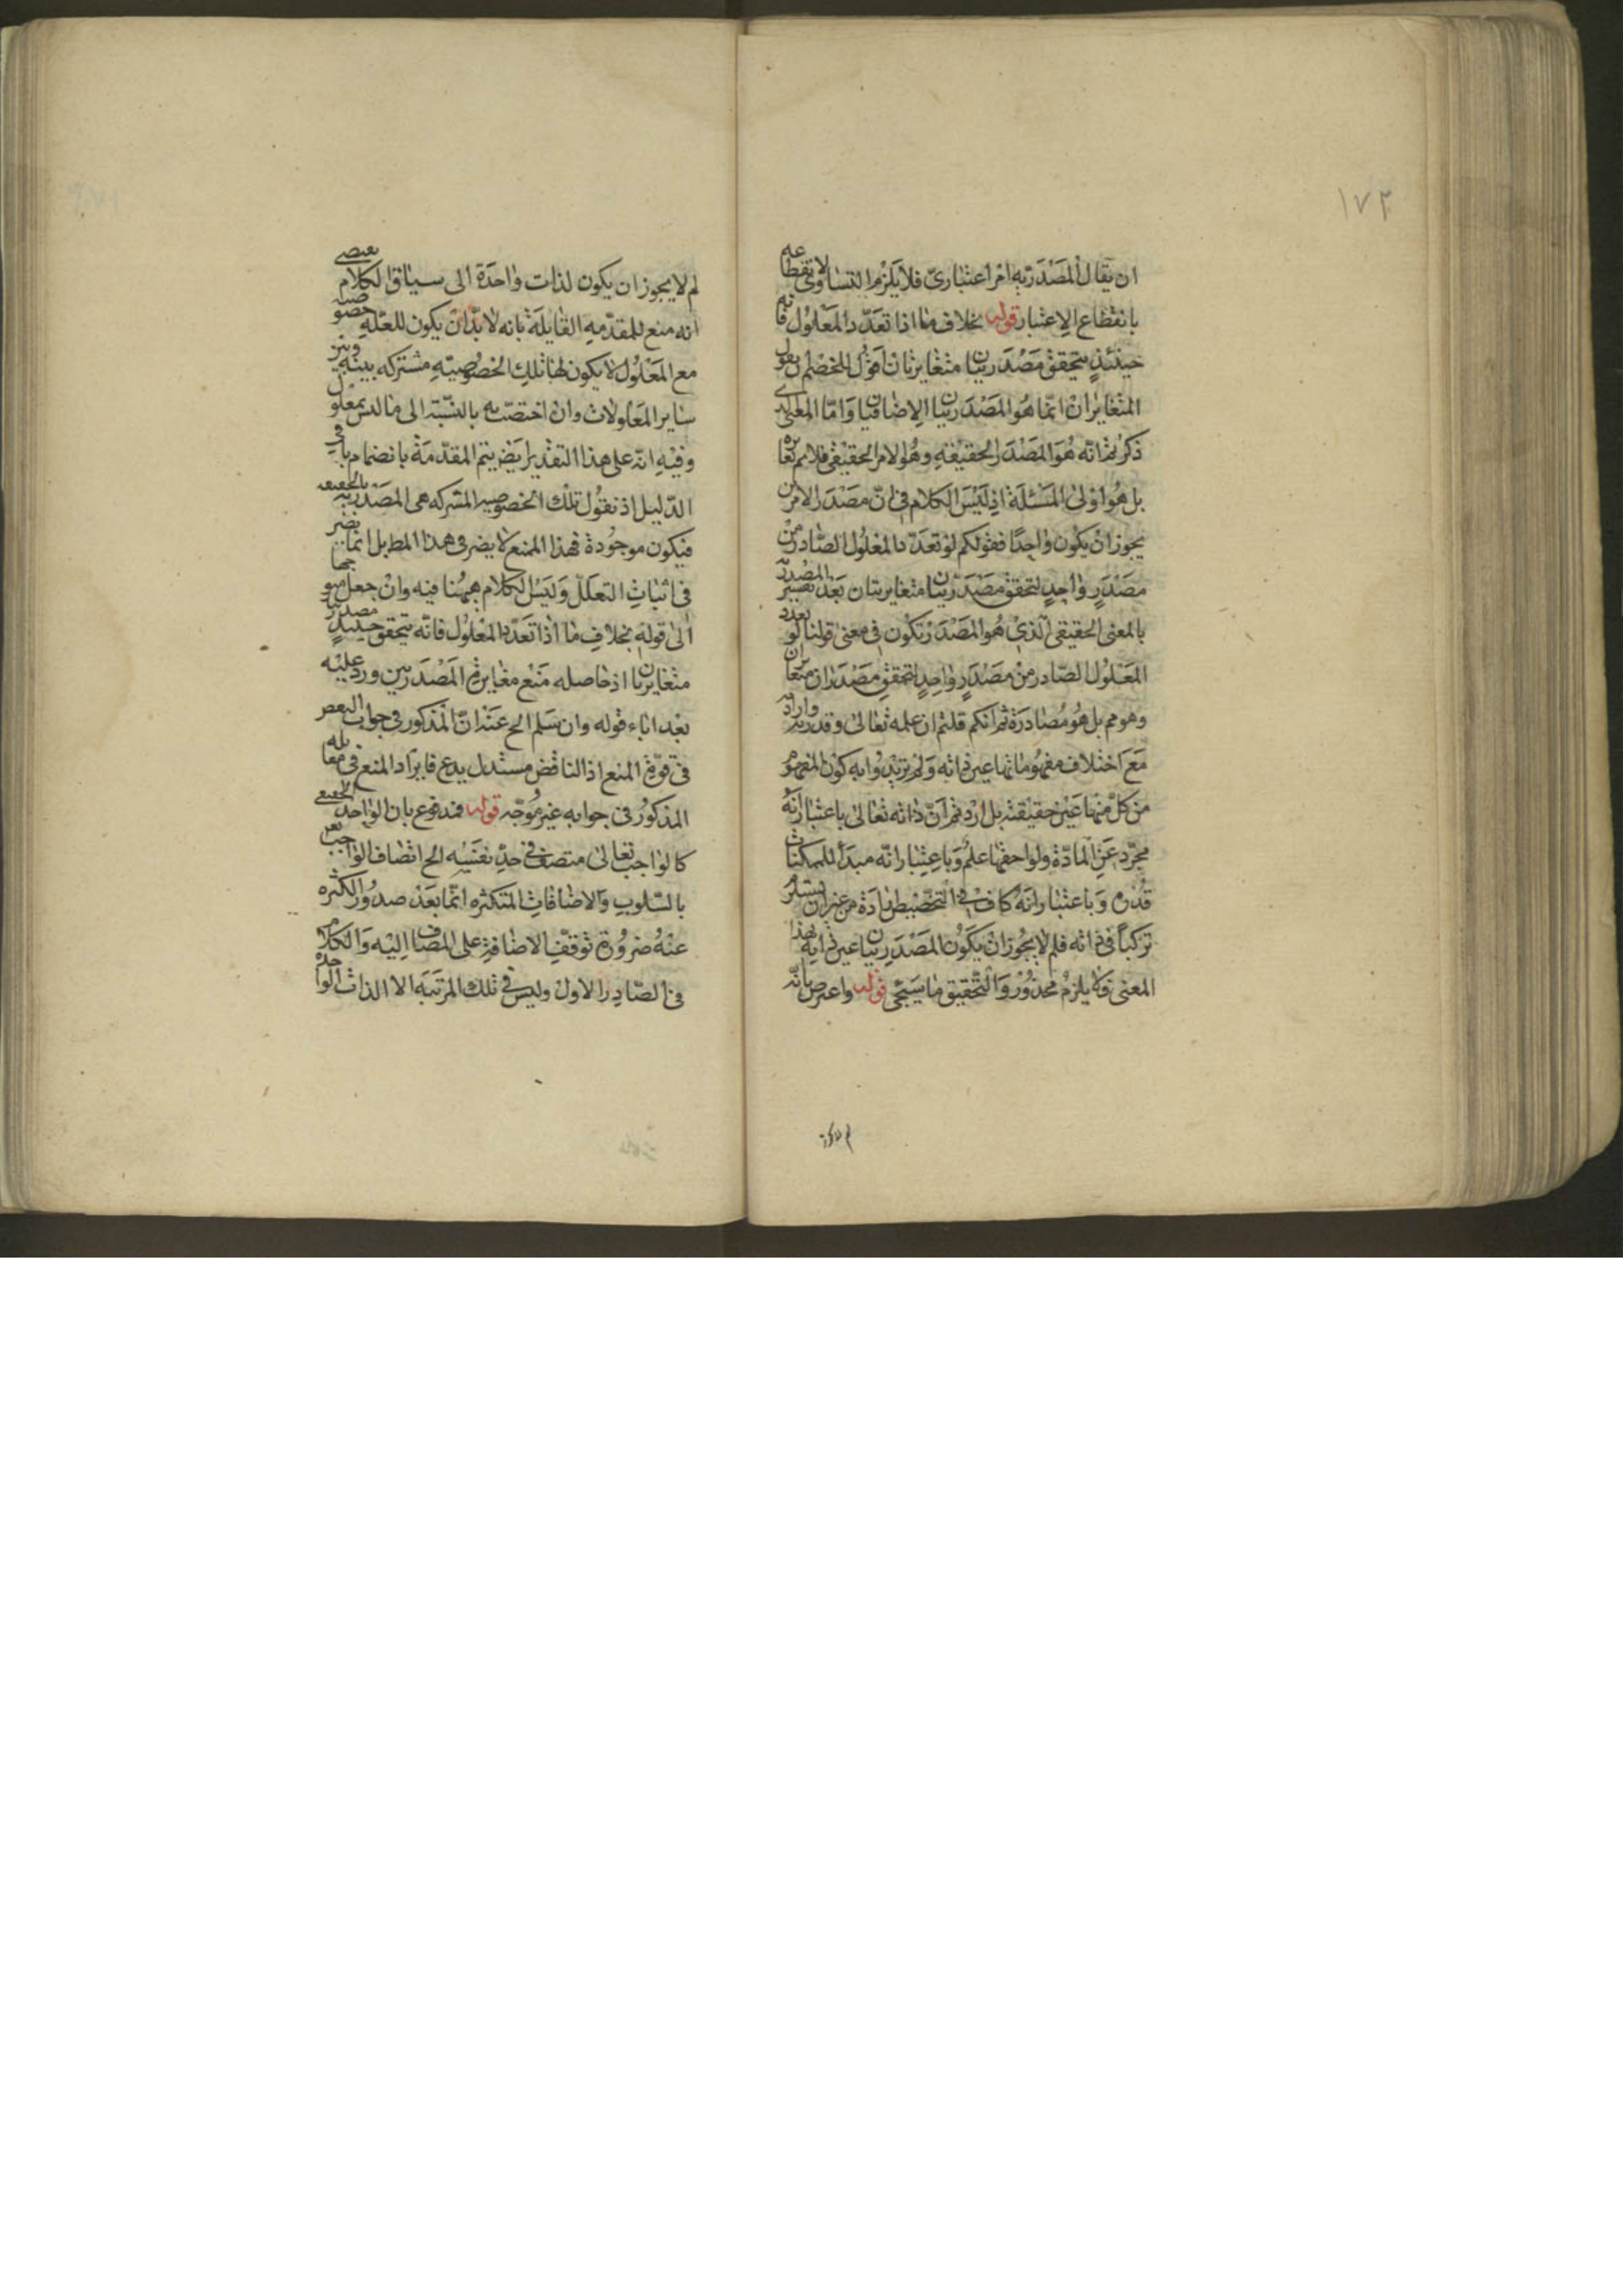 ١٧٣
ان يقال المصدرية امر اعتبارى فلا يلزم التساوى لانقطاعه
بانقطاع الاعتبار قوله بخلاف ما اذا تعدد المعلول فانه
حينئذ يتحقق مصدريتان متغايرتان اقول للخصم ان يقول
المتغايران انما هو المصدريتان الاضافيتان واما المعنى الذى
ذكرتم انه هو المصدر الحقيقة وهو الامر الحقيقى فلا نم تغايره
بل هو اولى المسئلة اذ ليس الكلام فى ان مصدر الامرين
يجوز ان يكون واحدا فقولكم لو تعدد المعلول الصادر من
مصدر واحد لتحقق مصدريتان متغايرتان بعد تفسير المصدرية
بالمعنى الحقيقى الذى هو المصدر تكون فى معنى قولنا لو تعدد
المعلول الصادر من مصدر واحد لتحقق مصدران متغايران
وهو مم بل هو مصادرة ثم انكم قلتم ان علمه تعالى وقدرته وارادته
مع اختلاف مفهوماتها عين ذاته ولم تريدوا به كون المفهوم
من كل منها عين حقيقته بل اردتم ان ذاته تعالى باعتبار انه
مجرد عن المادة ولواحقها علم وباعتبار انه مبدأ للممكنات
قدرة وباعتبار انه كاف فى التخصيص ارادة من غير ان يستلزم
تركبا فى ذاته فلم لا يجوز ان يكون المصدريتان عين ذاته بهذا
المعنى فلا يلزم محذور والتحقيق ما سيجئ قوله واعترض بانه
لم لا يجوز
لم لا يجوز ان يكون لذات واحدة الى سياق الكلام يقتضى
انه منع للمقدمه القايلة بانه لا بد ان يكون للعلة خصوصية
مع المعلول لا يكون لها تلك الخصوصية مشتركه بينه وبين
ساير المعلولات وان اختصت به بالنسبة الى ما ليس بمعلول
وفيه انه على هذا التقدير ايض يتم المقدمة بانضمام باقى
الدليل اذ نقول تلك الخصوصيه المشتركه هى المصدرية بالحقيقه
فيكون موجودة فهذا المنع لا يضر فى هذا المط بل انما يضر
فى اثبات التعلل وليس الكلام ههنا فيه وان جعل متوجها
الى قوله بخلاف ما اذا تعدد المعلول فانه يتحقق حينئذ مصدريتان
متغايرتان اذ حاصله منع مغايرة المصدريتين ورد عليه
بعد اباء قوله وان سلم الح عنه ان المذكور فى جواب النقض
فى قوة المنع اذ الناقض مستدل يدع فايراد المنع فى مقابله
المذكور فى جوابه غير موجه قوله فمدفوع بان الواحد الحقيقى
كالواجب تعالى متصف فى حد نفسه الح اتصاف الواجب تعر
بالسلوب والاضافات المتكثره انما بعد صدور الكثره
عنه ضرورة توقف الاضافة على المضاف اليه والكلام
فى الصادر الاول وليس فى تلك المرتبة الا الذات الواحدة